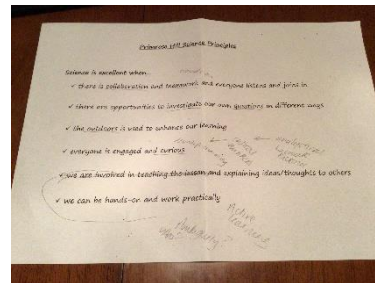 Primrose Hill Science Principles
Science is excellent when...
✓ there is collaboration and teamwork and everyone listens and joins in
✓ there are opportunities to investigate our own questions in different ways
✓ the outdoors is used to enhance our learning
✓ everyone is engaged and curious
✓ we are involved in teaching the lesson and explaining ideas/thoughts to others
✓ we can be hands-on and work practically
Active
learning
Ambiguity?